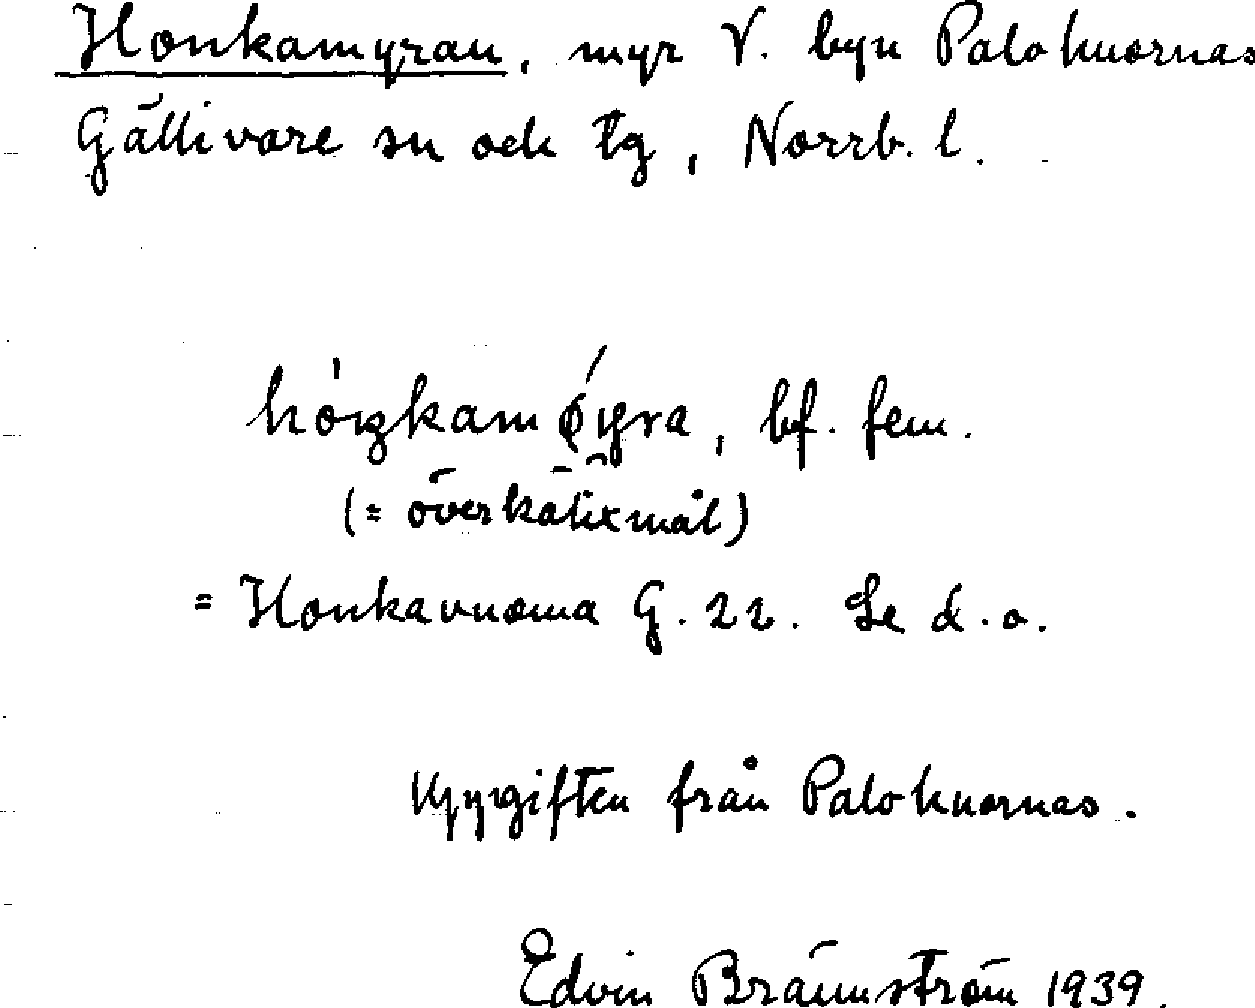 Honkamyran, myr V. byn Palohuornas
Gällivare sn och tg, Norrb. l.
hóŋkam øyra, bf. fem.
(= överkalixmål)
= Honkavuoma G. 22. Se d. o.
Uppgiften från Palohuornas.
Edvin Brännström 1939.